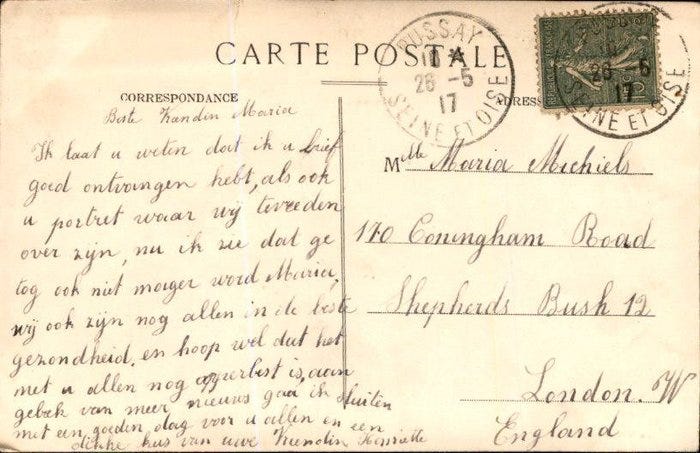 CARTE POSTALE
CORRESPONDANCE
ADRESS
PUSSAY
10
26 - 5
17
SEINE ET OISE
26 5
17
SEINE ET OISE
Beste Vriendin Maria
Ik laat u weten dat ik u brief
goed ontvaingen hebt, als ook
u portret waar wij tevreeden
over zijn, nu ik zie dat ge
tog ook niet mager word Maria,
wij ook zijn nog allen in de beste
gezondheid, en hoop wel dat het
met u allen nog opperbest is, aan
gebek van meer nieuws gaa ik sluiten
met een goeden dag voor u allen en een
dikke kus van uwe Vriendin Henriette
Mlle Maria Michiels
170 Coningham Road
Shepherds Bush 12
London. W
England